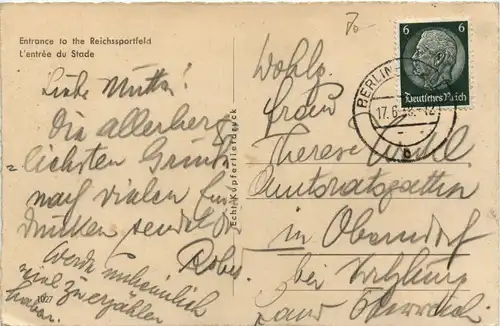 Entrance to the Reichssportfeld
L'entrée du Stade
Liebe Mutter!
Die allerherz
lichsten Grüße
nach vielen Ein
drücken sendet Dir
Robert
Werde unheimlich
viel zu erzählen
haben.
1027
Echt Kupfertiefdruck
Wohlg.
Frau
Therese
Amtsratsgattin
in Oberndorf
bei Salzburg
Land Österreich
6 6
Deutsches Reich
BERLIN
17.6
c